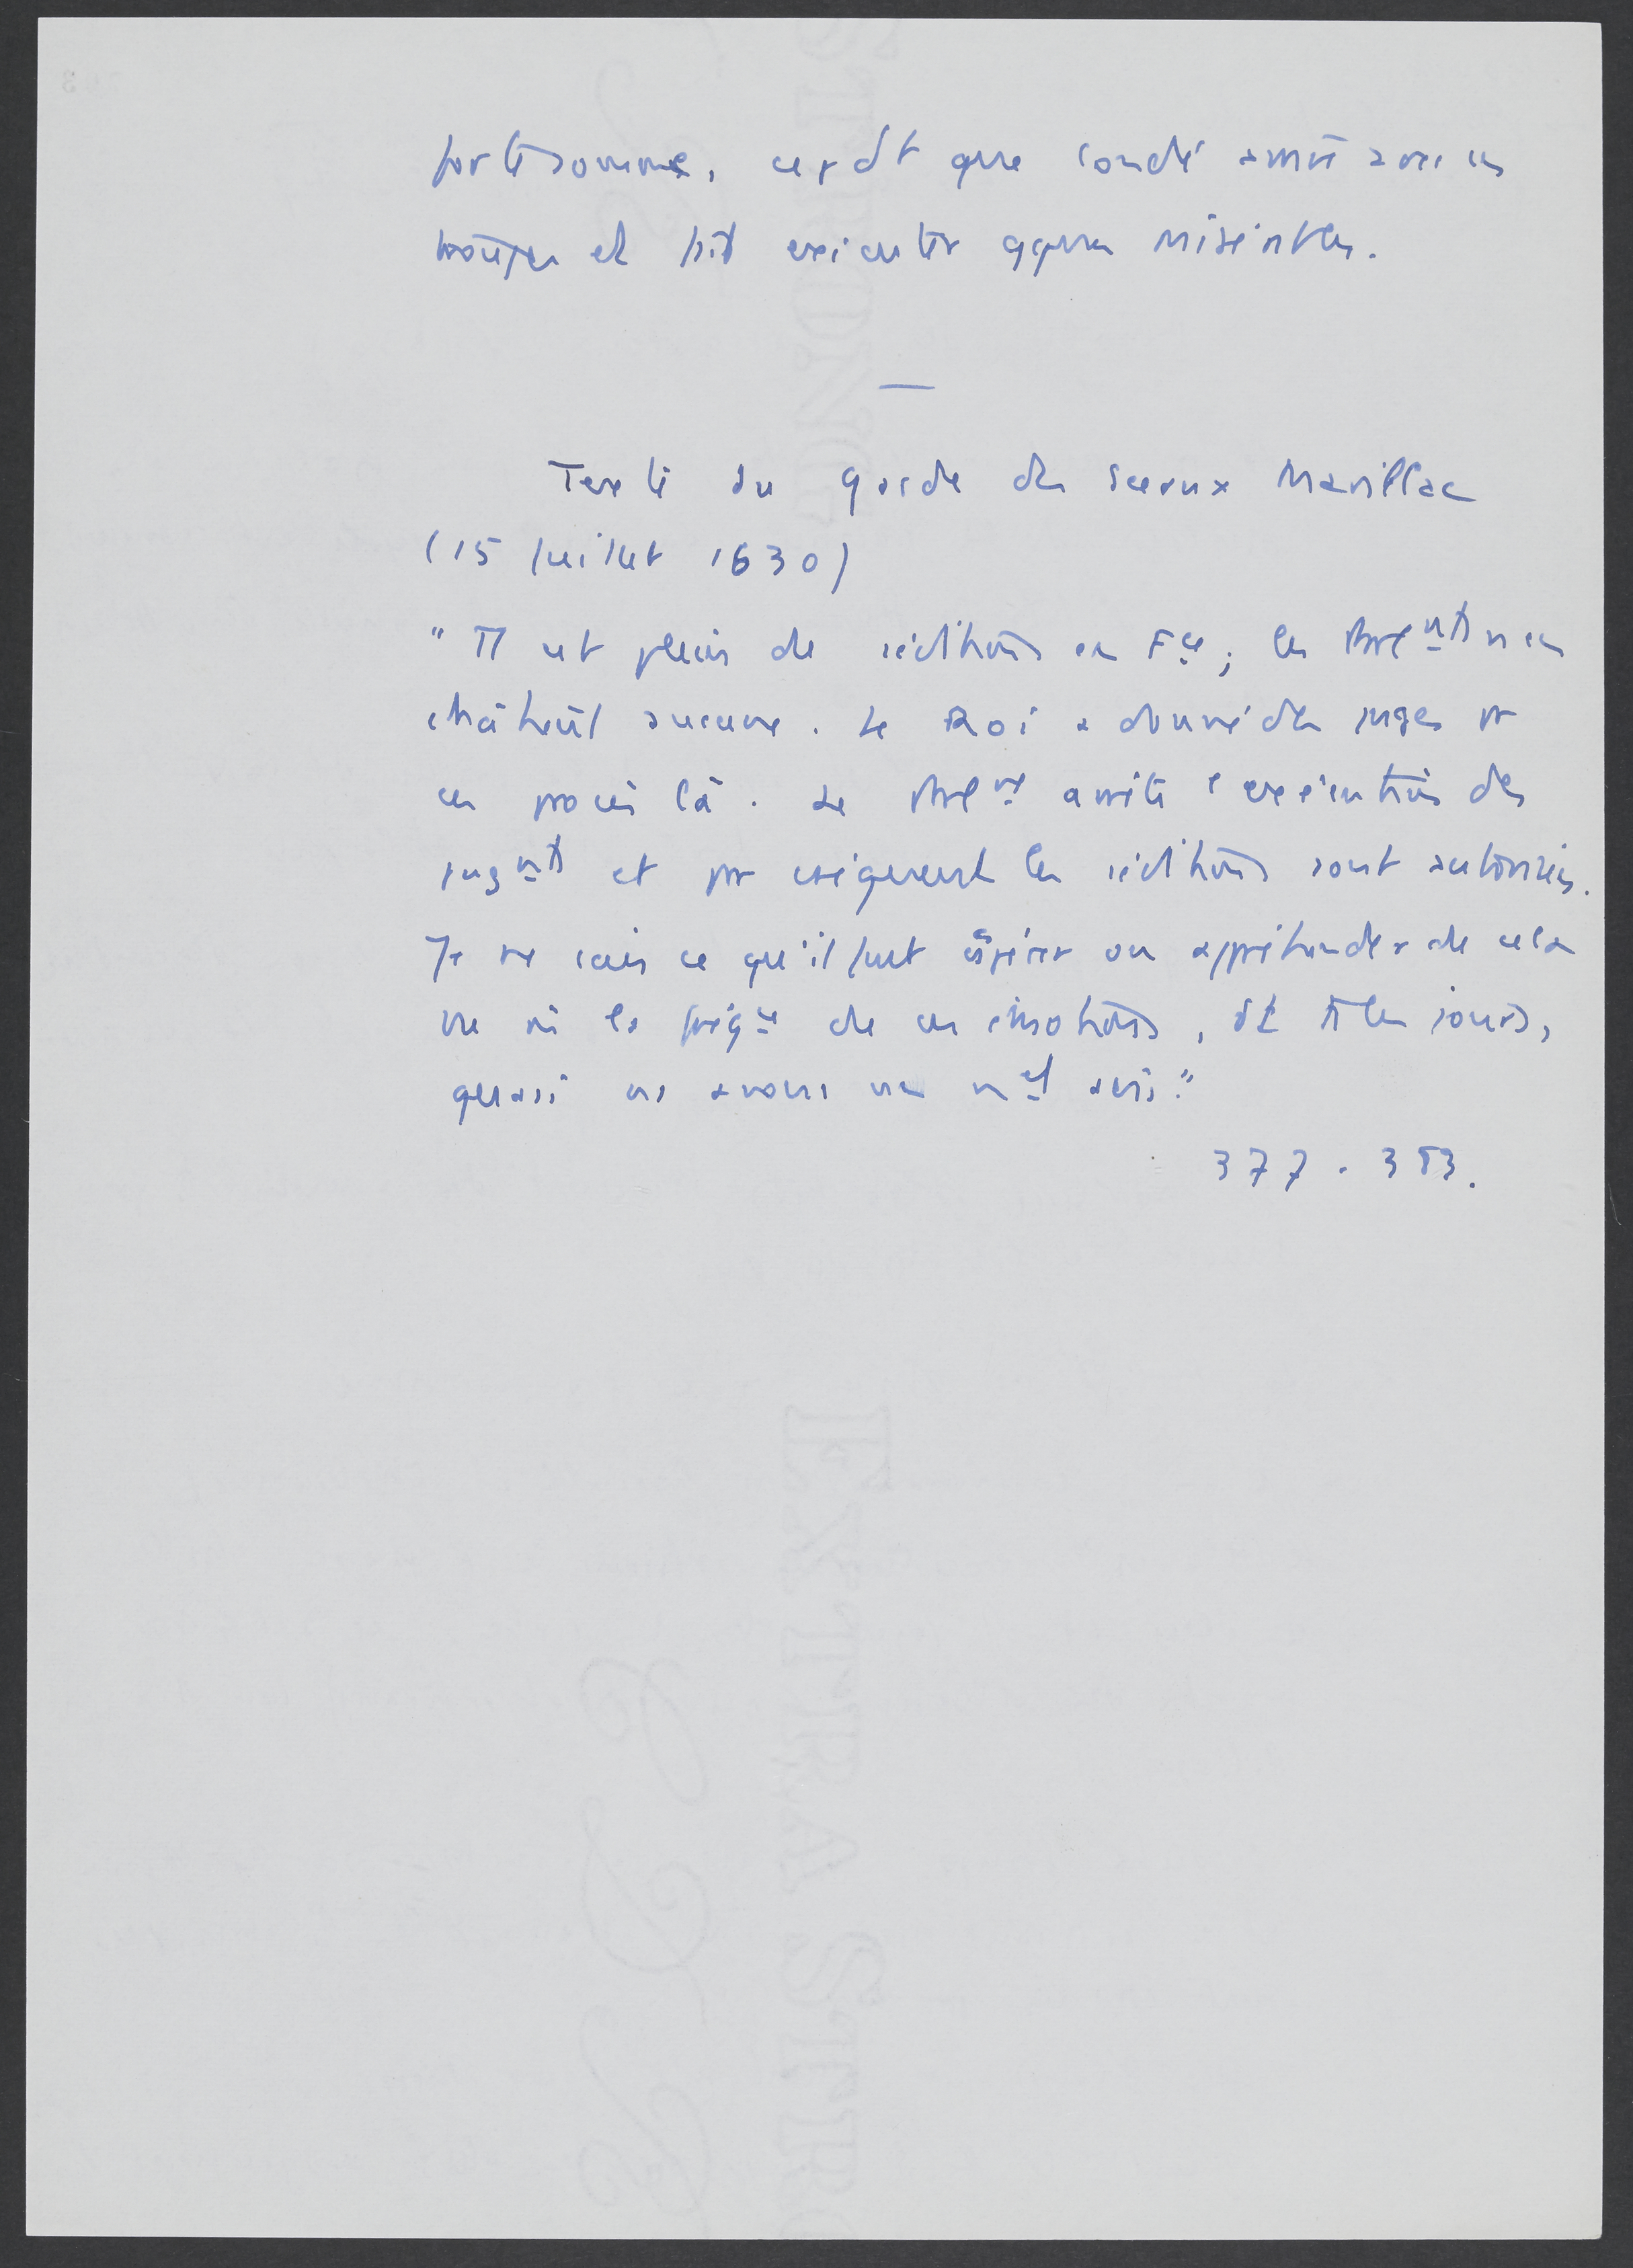 forte somme, cepdt que Condé arrive avec des
troupes et fait exécuter qques misérables.
—
Texte du garde des sceaux Marillac
(15 juillet 1630)
"Tt est plein de séditions en Fce ; les Parlnts n'en
châtient aucune. Le Roi a donné des juges pr
ces procès là. Le Parlnt arrête l'exécution des
jugnts et par conséquent les séditions sont autorisées.
Je ne sais ce qu'il faut espérer ou appréhender de cela
vu la fréqce de ces émotions, dt ts les jours,
quasi ns avons un nvel avis."
377-383.